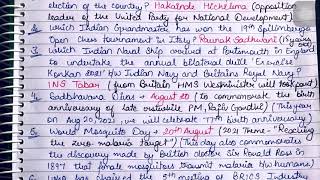 election of the country? Hakainde Hichilema (opposition
leader of the United Party for National Development)
Which Indian Grandmaster has won the 19th Spilimbergo
Open Chess Tournament in Italy? Raunak Sadhwani (15 years old)
Which Indian Naval Ship arrived at Portsmouth in England
to undertake the annual bilateral drill 'Exercise
Konkan 2021' b/w Indian Navy and Britain's Royal Navy?
INS Tabar (from "HMS Westminster will took part)
Sadbhavana Diwas - August 20 (to commemorate the birth
anniversary of late erstwhile PM, Rajiv Gandhi) (This year
on Aug 20, 2021, we will celebrate 77th birth anniversary)
World Mosquito Day - 20th August (2021 Theme - "Reaching
the zero malaria target") (This day also commemorates
the discovery made by British doctor Sir Ronald Ross in
1897 that female mosquitoes transmit malaria b/w humans)
has chaired the 5th meeting of BRICS Industry